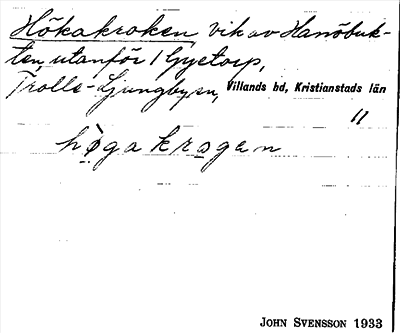 Hökakroken vik av Hanöbuk-
ten, utanför 1 Gyetorp,
Trolle-Ljungby sn, Villands hd, Kristianstads län
11
høgakrɑgan
JOHN SVENSSON 1933